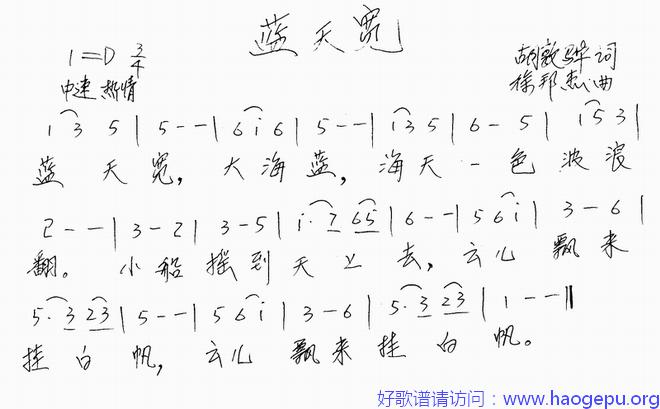 蓝天宽
1=D 3/4
胡敦骅 词
中速 热情
徐邦杰 曲
1 3 5 | 5 - - | 6 i 6 | 5 - - | i 3 5 | 6 - 5 | i 5 3 |
蓝 天 宽, 大 海 蓝, 海 天 一 色 波 浪
2 - - | 3 - 2 | 3 - 5 | i· 7 6 5 | 6 - - | 5 6 i | 3 - 6 |
翻。 小 船 摇 到 天 上 去, 云儿 飘 来
5· 3 2 3 | 5 - - | 5 6 i | 3 - 6 | 5· 3 2 3 | 1 - - ‖
挂 白 帆, 云儿 飘 来 挂 白 帆。
好歌谱请访问：www.haogepu.org